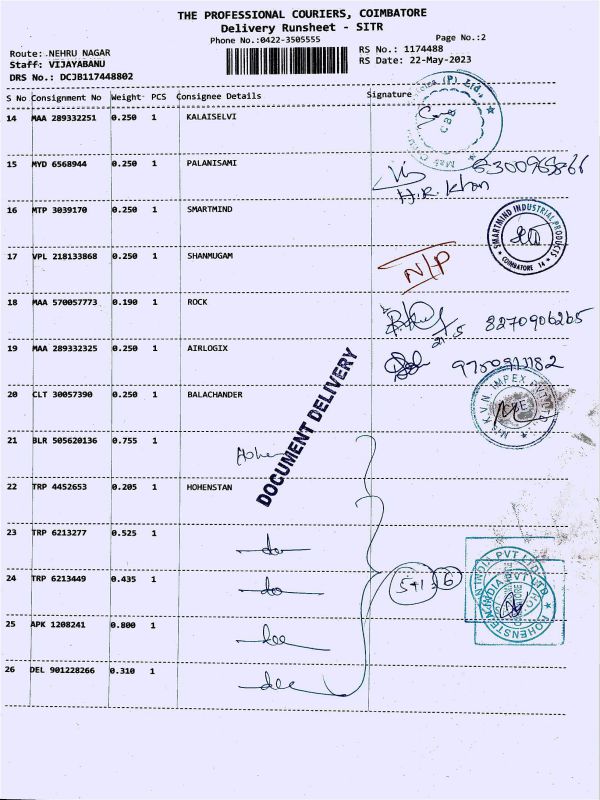 THE PROFESSIONAL COURIERS, COIMBATORE
Delivery Runsheet - SITR
Phone No.:0422-3505555
Page No.:2
Route: NEHRU NAGAR
RS No.: 1174488
Staff: VIJAYABANU
RS Date: 22-May-2023
DRS No.: DCJB117448802
S No Consignment No Weight PCS Consignee Details Signature
14 MAA 289332251 0.250 1 KALAISELVI
15 MYD 6568944 0.250 1 PALANISAMI
H.R. Khan
16 MTP 3039170 0.250 1 SMARTMIND
SMARTMIND INDUSTRIAL PRODUCTS
COIMBATORE 14
17 VPL 218133868 0.250 1 SHANMUGAM N/P
18 MAA 570057773 0.190 1 ROCK 8270906265
21/5
19 MAA 289332325 0.250 1 AIRLOGIX
20 CLT 30057390 0.250 1 BALACHANDER
K.V.N. IMPEX PVT LTD
DOCUMENT DELIVERY
21 BLR 505620136 0.755 1
22 TRP 4452653 0.205 1 HOHENSTAN
23 TRP 6213277 0.525 1 do
24 TRP 6213449 0.435 1 do 5+1 6
HOHENSTEIN INDIA PVT LTD
25 APK 1208241 0.800 1
26 DEL 901228266 0.310 1